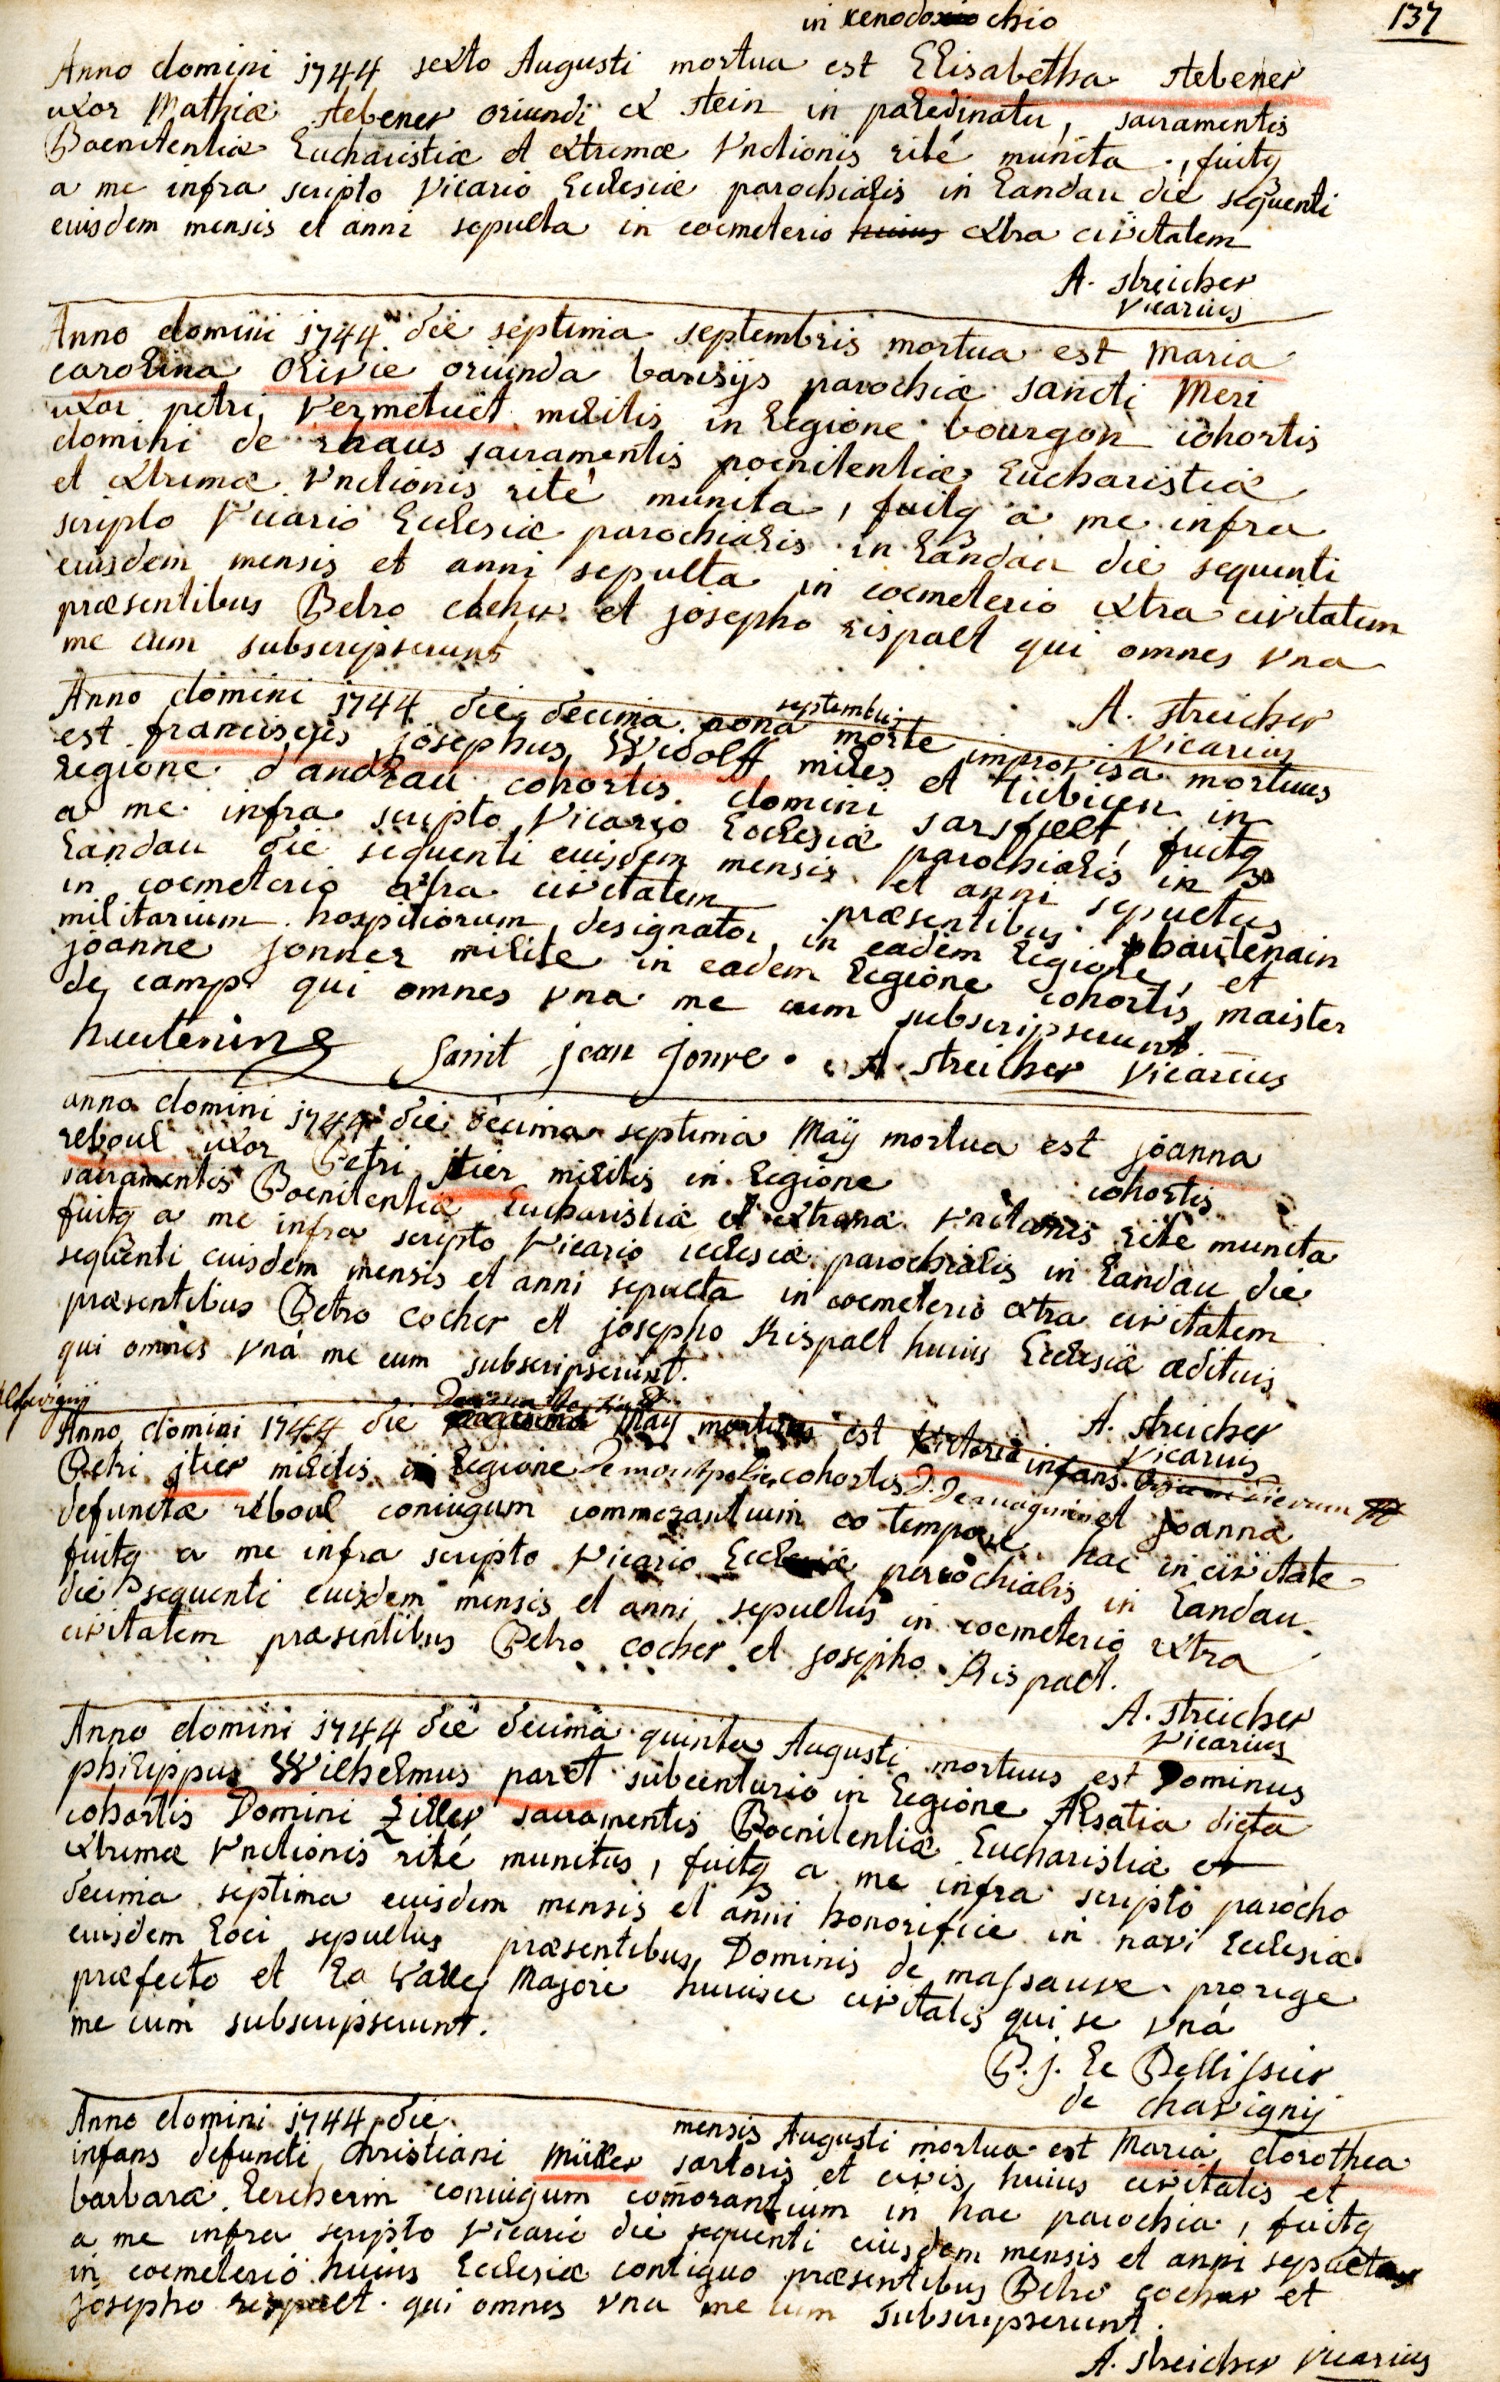 137
in xenodochio
Anno domini 1744 sexto Augusti mortua est Elisabetha stebener
uxor Mathiæ stebener oriundi ex stein in paledinatu, sacramentis
Poenitentiæ Eucharistiæ et extremæ Vnctionis rité munita, fuitq
a me infra scripto Vicario Ecclesiæ parochialis in Landau die sequenti
eiusdem mensis et anni sepulta in coemeterio huius extra civitatem
A. streicher
Vicarius
Anno domini 1744 die septima septembris mortua est Maria
carolina Olivie oriunda barisijs parochiæ sancti Meri
uxor petri Vermetuet militis in Legione bourgon cohortis
domini de rhaus sacramentis poenitentiæ Eucharistiæ
et extremæ Vnctionis rité munita, fuitq a me infra
scripto Vicario Ecclesiæ parochialis in Landau die sequenti
eiusdem mensis et anni sepulta in coemeterio extra civitatem
præsentibus Petro cocher et josepho rispalt qui omnes vna
me cum subscripserunt
A. streicher
Vicarius
Anno domini 1744 die decima nona septembris morte improvisa mortuus
est franciscus josephus Widolff miles et tubicen in
Legione d'andlau cohortis domini sarsfielt, fuitq
a me infra scripto Vicario Ecclesiæ parochialis in
Landau die sequenti eiusdem mensis et anni sepultus
in coemeterio extra civitatem præsentibus bautenain
militarium hospitiorum designator in eadem Legione, et
joanne jonner milite in eadem Legione cohortis maister
de camp qui omnes vna me cum subscripserunt
sanit jean jonre. A. streicher Vicarius
anno domini 1744 die decima septima Maÿ mortua est joanna
reboul uxor Petri jtier militis in Legione cohortis
sacramentis Poenitentiæ Eucharistiæ et extremæ Vnctionis rité munita
fuitq a me infra scripto Vicario ecclesiæ parochialis in Landau die
sequenti eiusdem mensis et anni sepulta in coemeterio extra civitatem
præsentibus Petro cocher et josepho Rispalt huius Ecclesiæ ædituis
qui omnes vná me cum subscripserunt.
A. streicher
Vicarius
Anno domini 1744 die May mortuus est victoria infans dierum
Petri jtier militis in Legione De montpolier cohortis D. et joanna
defunctæ réboul coniugum commorantium eo tempore hac in civitate
fuitq a me infra scripto Vicario Ecclesiæ parochialis in Landau
die sequenti eiusdem mensis et anni sepultus in coemeterio extra
civitatem præsentibus Petro cocher et josepho Rispalt.
A. streicher
Vicarius
Anno domini 1744 die decima quinta Augusti mortuus est Dominus
philippus Wilhelmus paret subcenturio in Legione Alsatia dicta
cohortis Domini Ziller sacramentis Poenitentiæ Eucharistiæ et
extremæ Vnctionis rité munitus, fuitq a me infra scripto parocho
decima septima eiusdem mensis et anni honorifice in navi Ecclesiæ
eiusdem Loci sepultus præsentibus Dominis de massauve prorege
præfecto et La Valley Majore huiusce civitatis qui se vná
me cum subscripserunt.
P. j. Le Pellissier
de chavignij
Anno domini 1744 die mensis Augusti mortua est Maria dorothea
infans defuncti christiani Müller sartoris et civis huius civitatis et
barbara Lercherin coniugum comorantium in hac parochia, fuitq
a me infra scripto vicario die sequenti eiusdem mensis et anni sepulta
in coemeterio huius Ecclesiæ contiguo præsentibus Petro cocher et
josepho rispalt qui omnes vna me cum subscripserunt.
A. streicher Vicarius